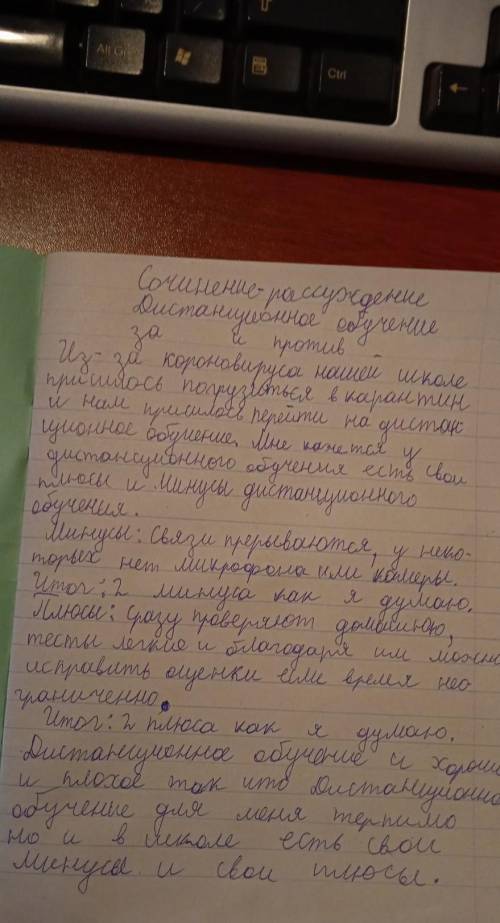 Alt Gr
Ctrl
Сочинение-рассуждение
Дистанционное обучение
за и против
Из-за короновируса нашей школе
пришлось погрузиться в карантин
и нам пришлось перейти на дистан
ционное обучение. Мне кажется у
дистанционного обучения есть свои
плюсы и минусы дистанционного
обучения.
Минусы: Связи прерываются, у неко-
торых нет микрофона или камеры.
Итог: 2 минуса как я думаю.
Плюсы: сразу проверяют домашнюю,
тесты легкие и благодаря им можно
исправить оценки если время нео
граниченно.
Итог: 2 плюса как я думаю.
Дистанционное обучение и хорош
и плохое так что Дистанционно
обучение для меня терпимо
но и в школе есть свои
минусы и свои плюсы.